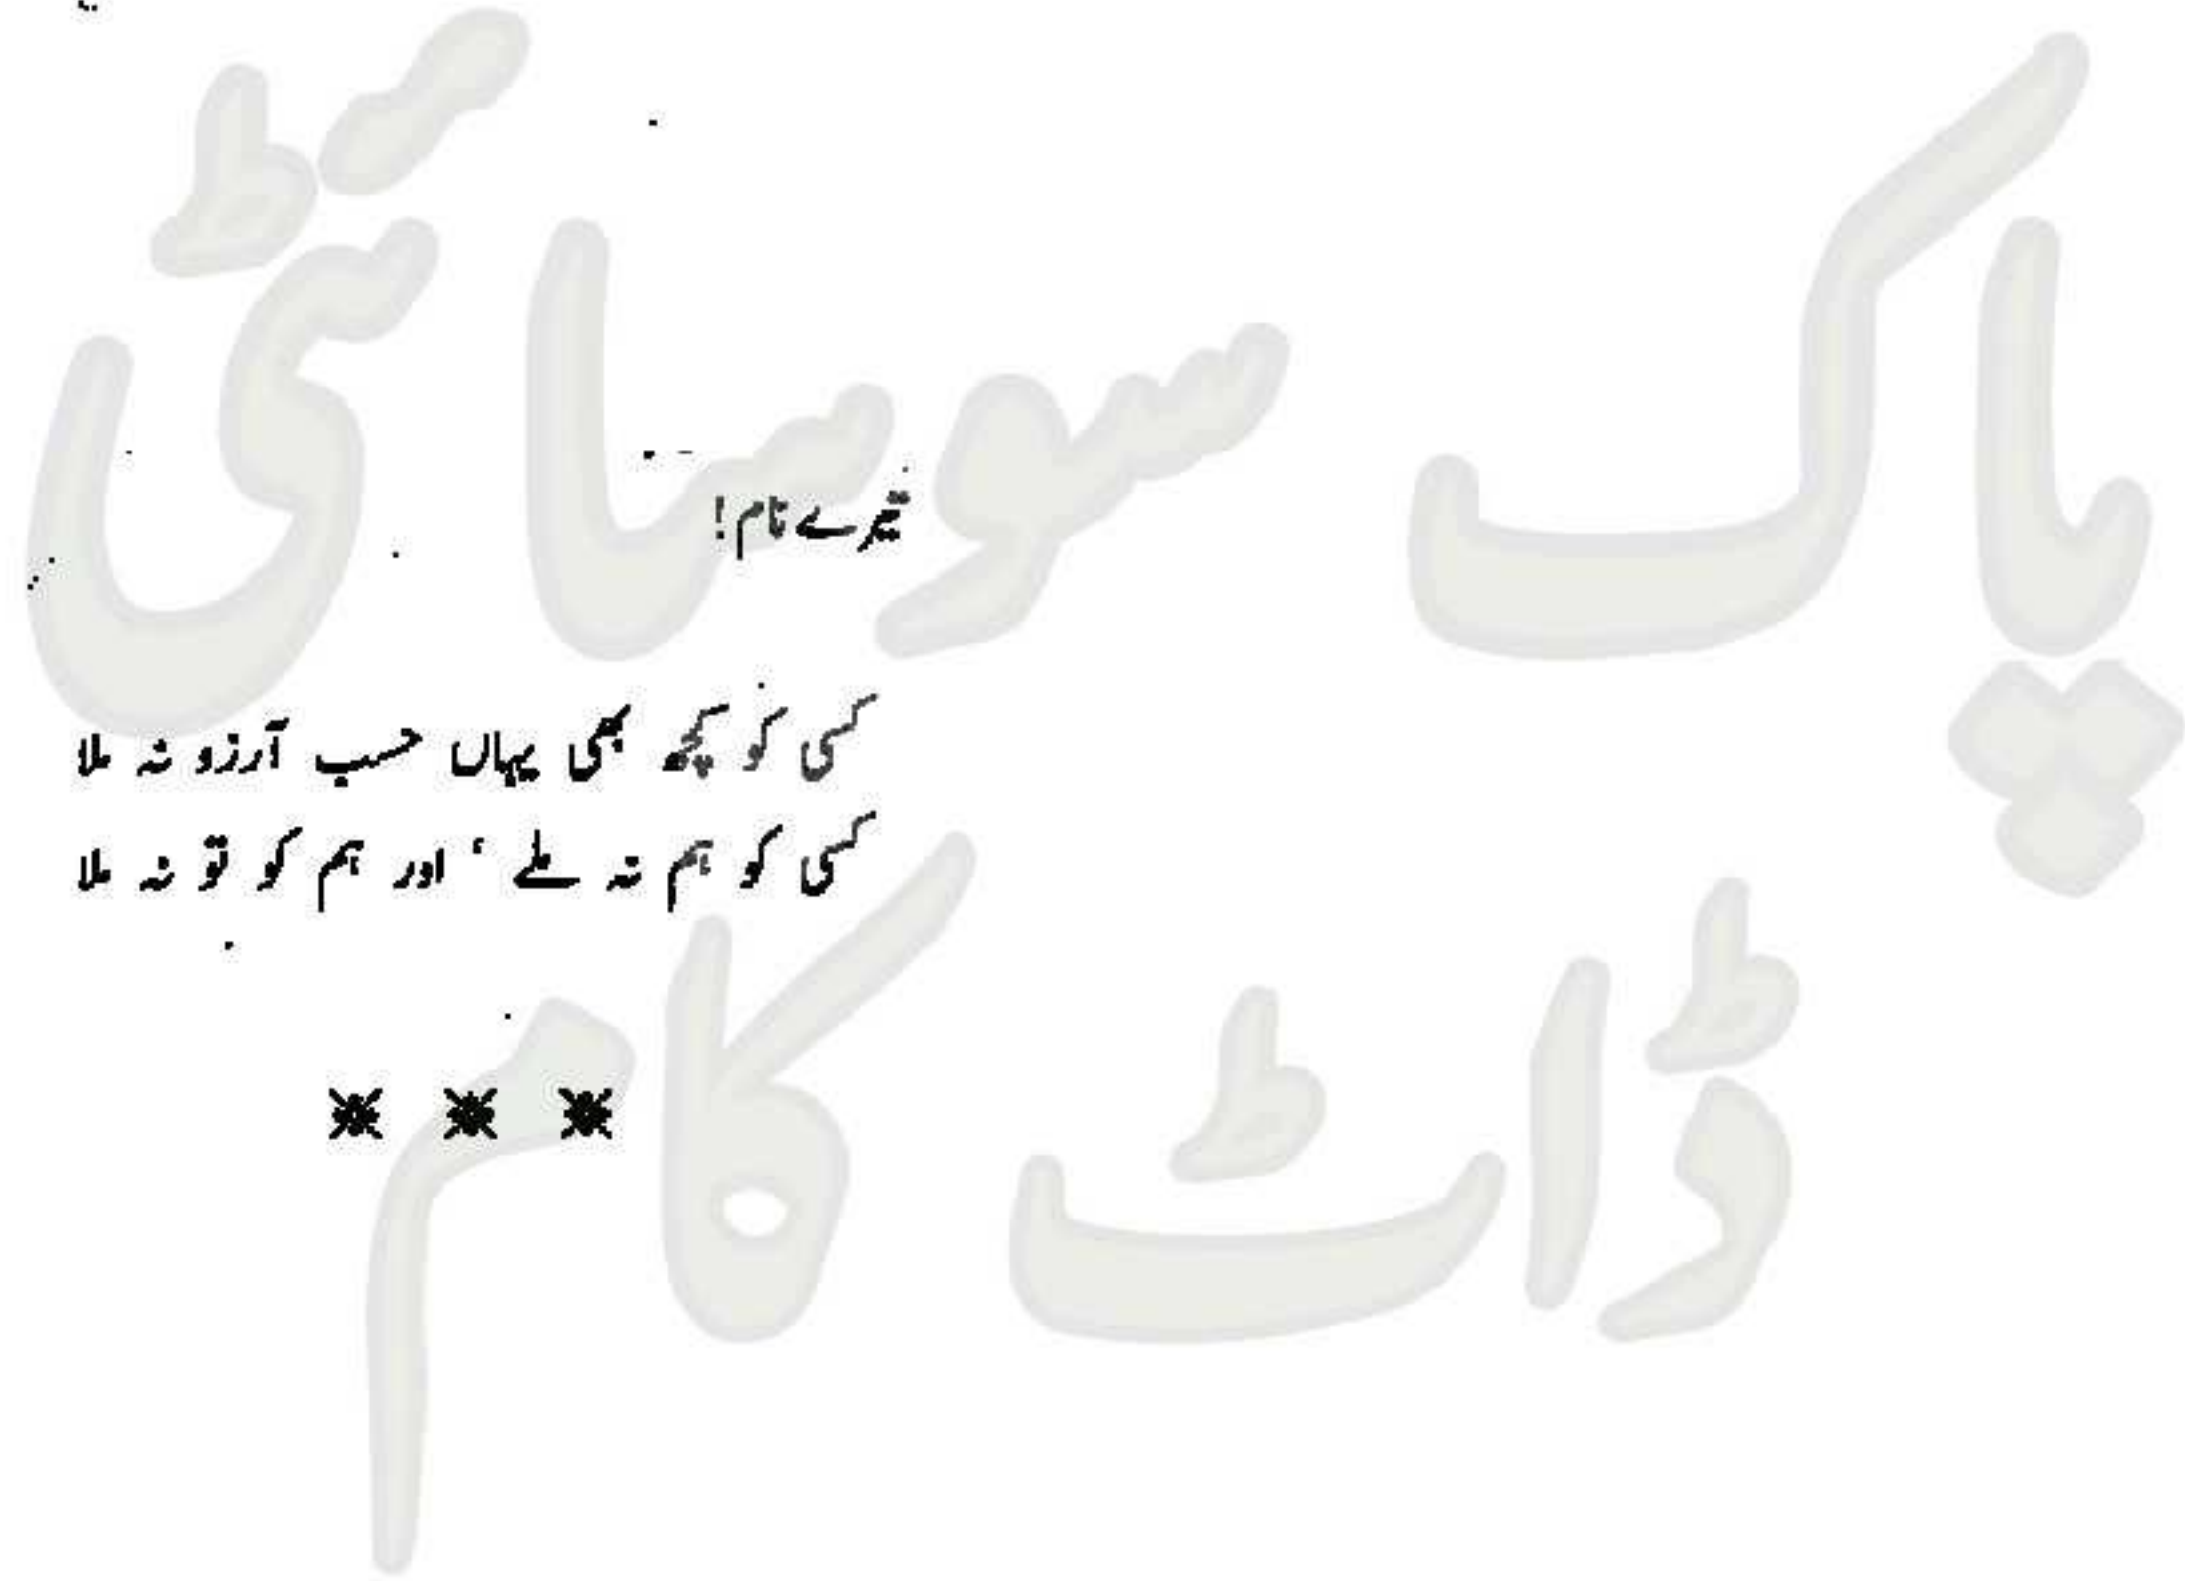 پاک سوسائٹی
تیرے نام!
کسی کو کچھ بھی یہاں حسب آرزو نہ ملا
کسی کو ہم نہ ملے ‘ اور ہم کو تو نہ ملا
ڈاٹ کام